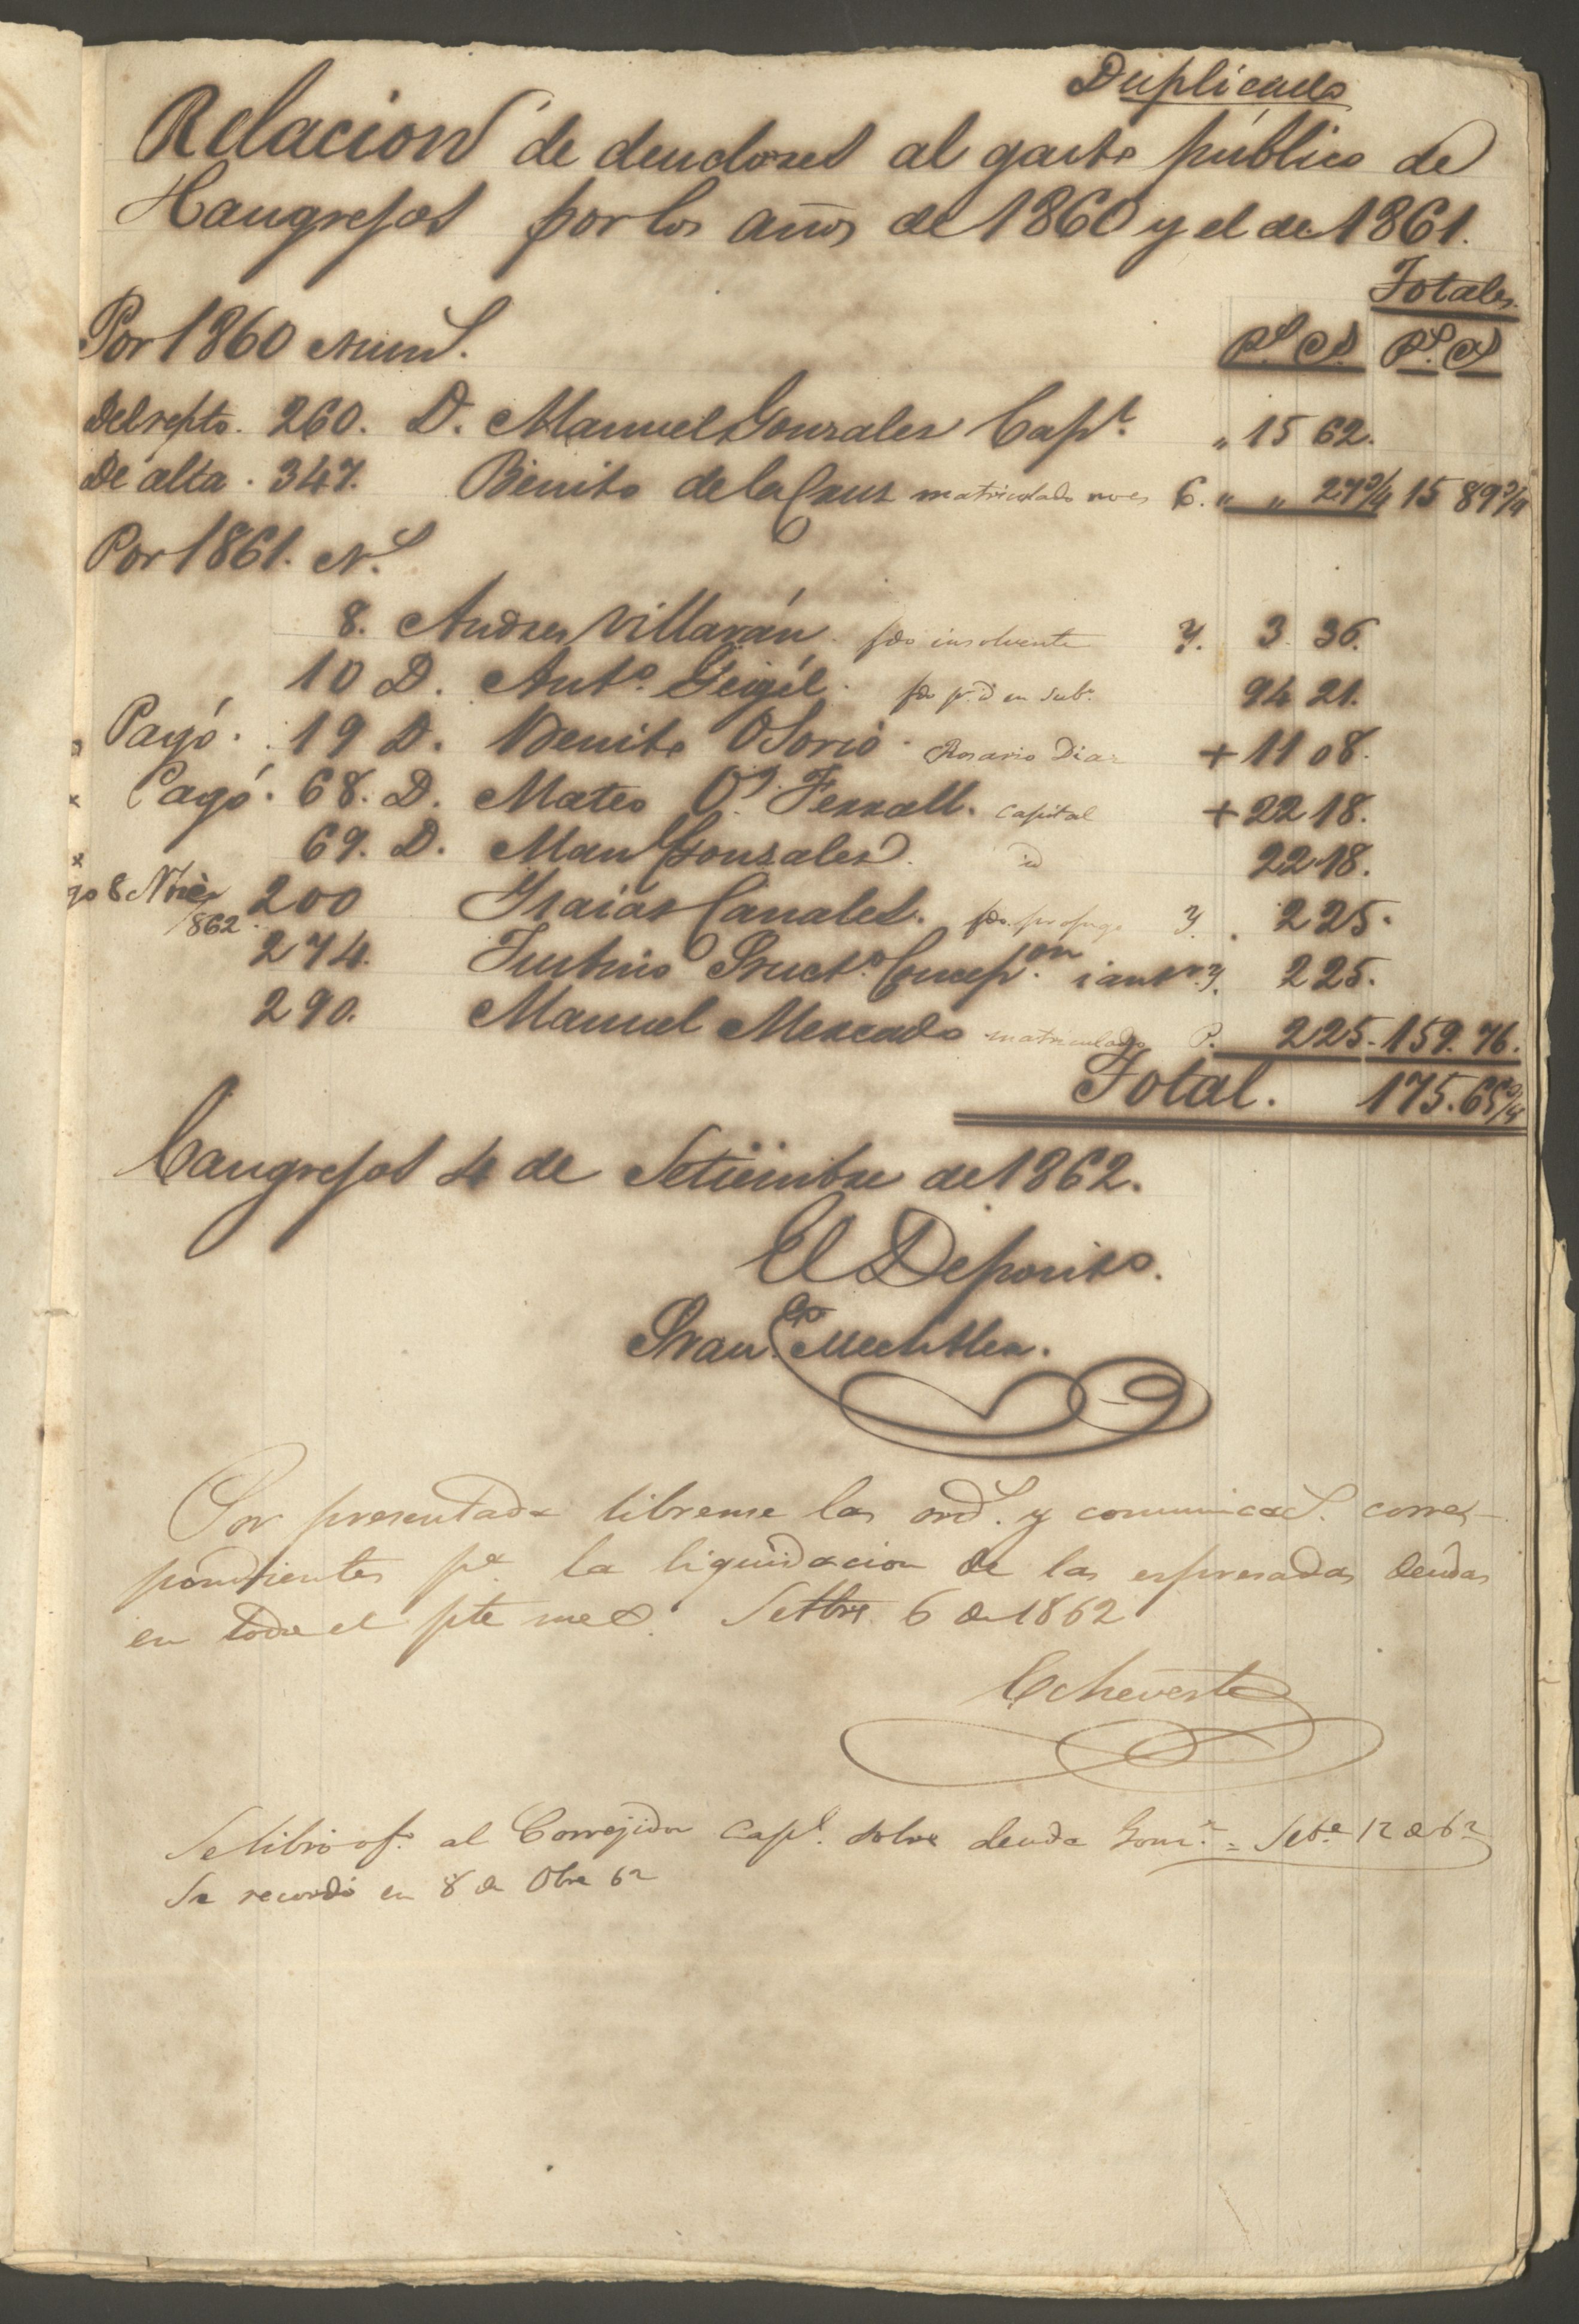 Duplicado
Relacion de deudores al gasto público de
Cangrejos por los años de 1860 y el de 1861.
Totales.
Por 1860 Num.s Ps. Cs. Ps. Cs
Del repto. 260. D. Manuel Gonzales Capl. " 15 62.
De alta. 347. Benito de la Cruz matriculado C. " " 27 3/4 15 89 3/4
Por 1861. N.s
8. Andres Villarán. insolvente 3. 36.
10 D. Anto. Geigél. 94 21.
Pagó. 19 D. Benito OSorio. Rosario Diaz + 11 08.
Pagó. 68. D. Mateo O'. Ferrall. Capital + 22 18.
69. D. Manl Gonzales. id 22 18.
go 8 Nbre 200 Isaias Canales. profugo 2 25.
/862.
274. Justino Fructo. Concepon. 2 25.
290. Manuel Mercado matriculado P. 2 25. 159. 76.
Total. 175. 65 3/4
Cangrejos 4 de Setiembre de 1862.
El Deposito.
Franco.
Por presentada librense las ords. y comunicacs. corres-
pondientes pa. la liquidacion de las espresadas deudas
en todo el pte mes. Setbre. 6 de 1862
Echeveste
Se libró ofo. al Corregidor Capl. sobre deuda Gonz. = Sete 12 de 62
Se recordó en 8 de Obre 62